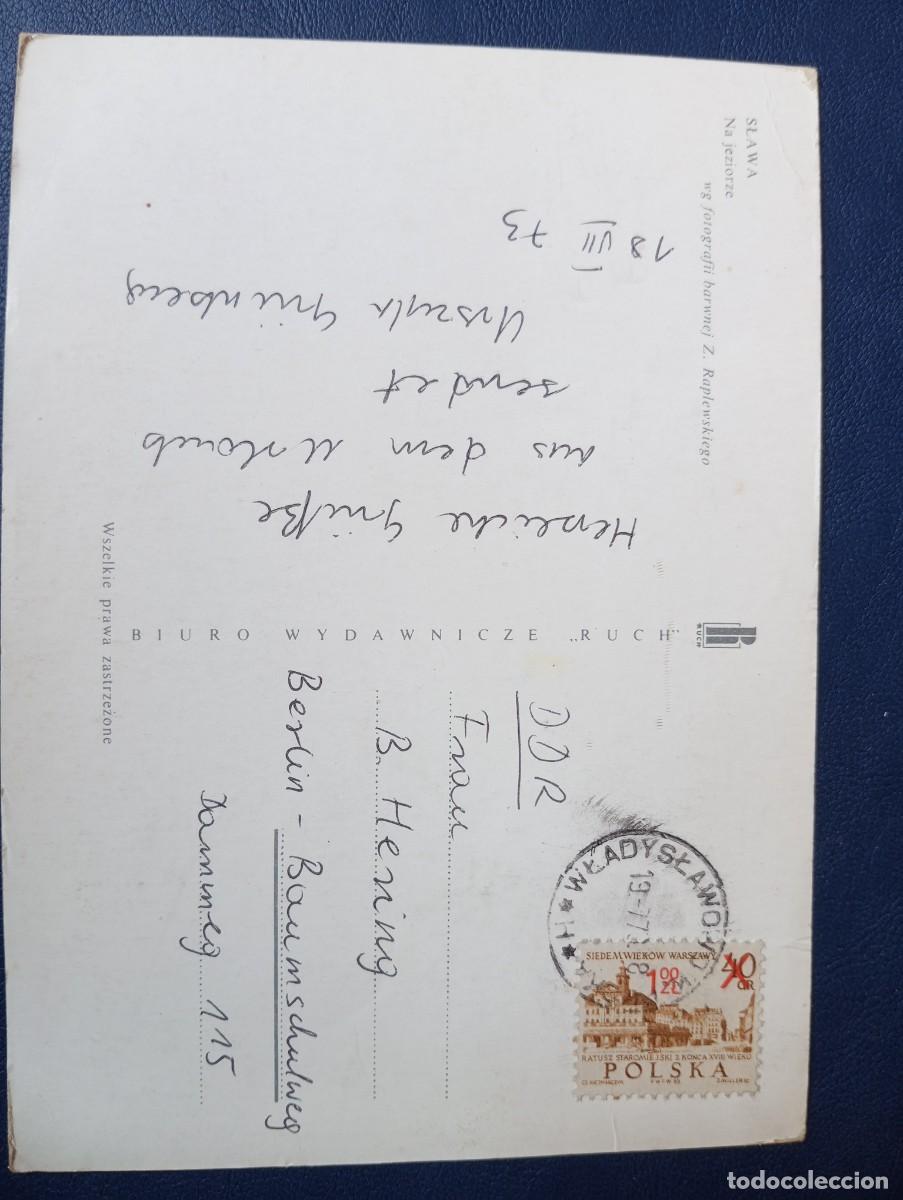 SŁAWA
Na jeziorze
wg fotografii barwnej Z. Raplewskiego
18 VII 73
Herzliche Grüße
aus dem Urlaub
sendet
Urszula Grünberg
BIURO WYDAWNICZE „RUCH"
RUCH
Wszelkie prawa zastrzeżone
DDR
Frau
B. Hering
Berlin - Baumschulweg
Dammweg 115
WŁADYSŁAWOWO
19.-7.73
8
SIEDEM WIEKÓW WARSZAWY
40 GR
1 00 ZŁ
RATUSZ STAROMIEJSKI Z KOŃCA XVIII WIEKU
POLSKA
todocoleccion